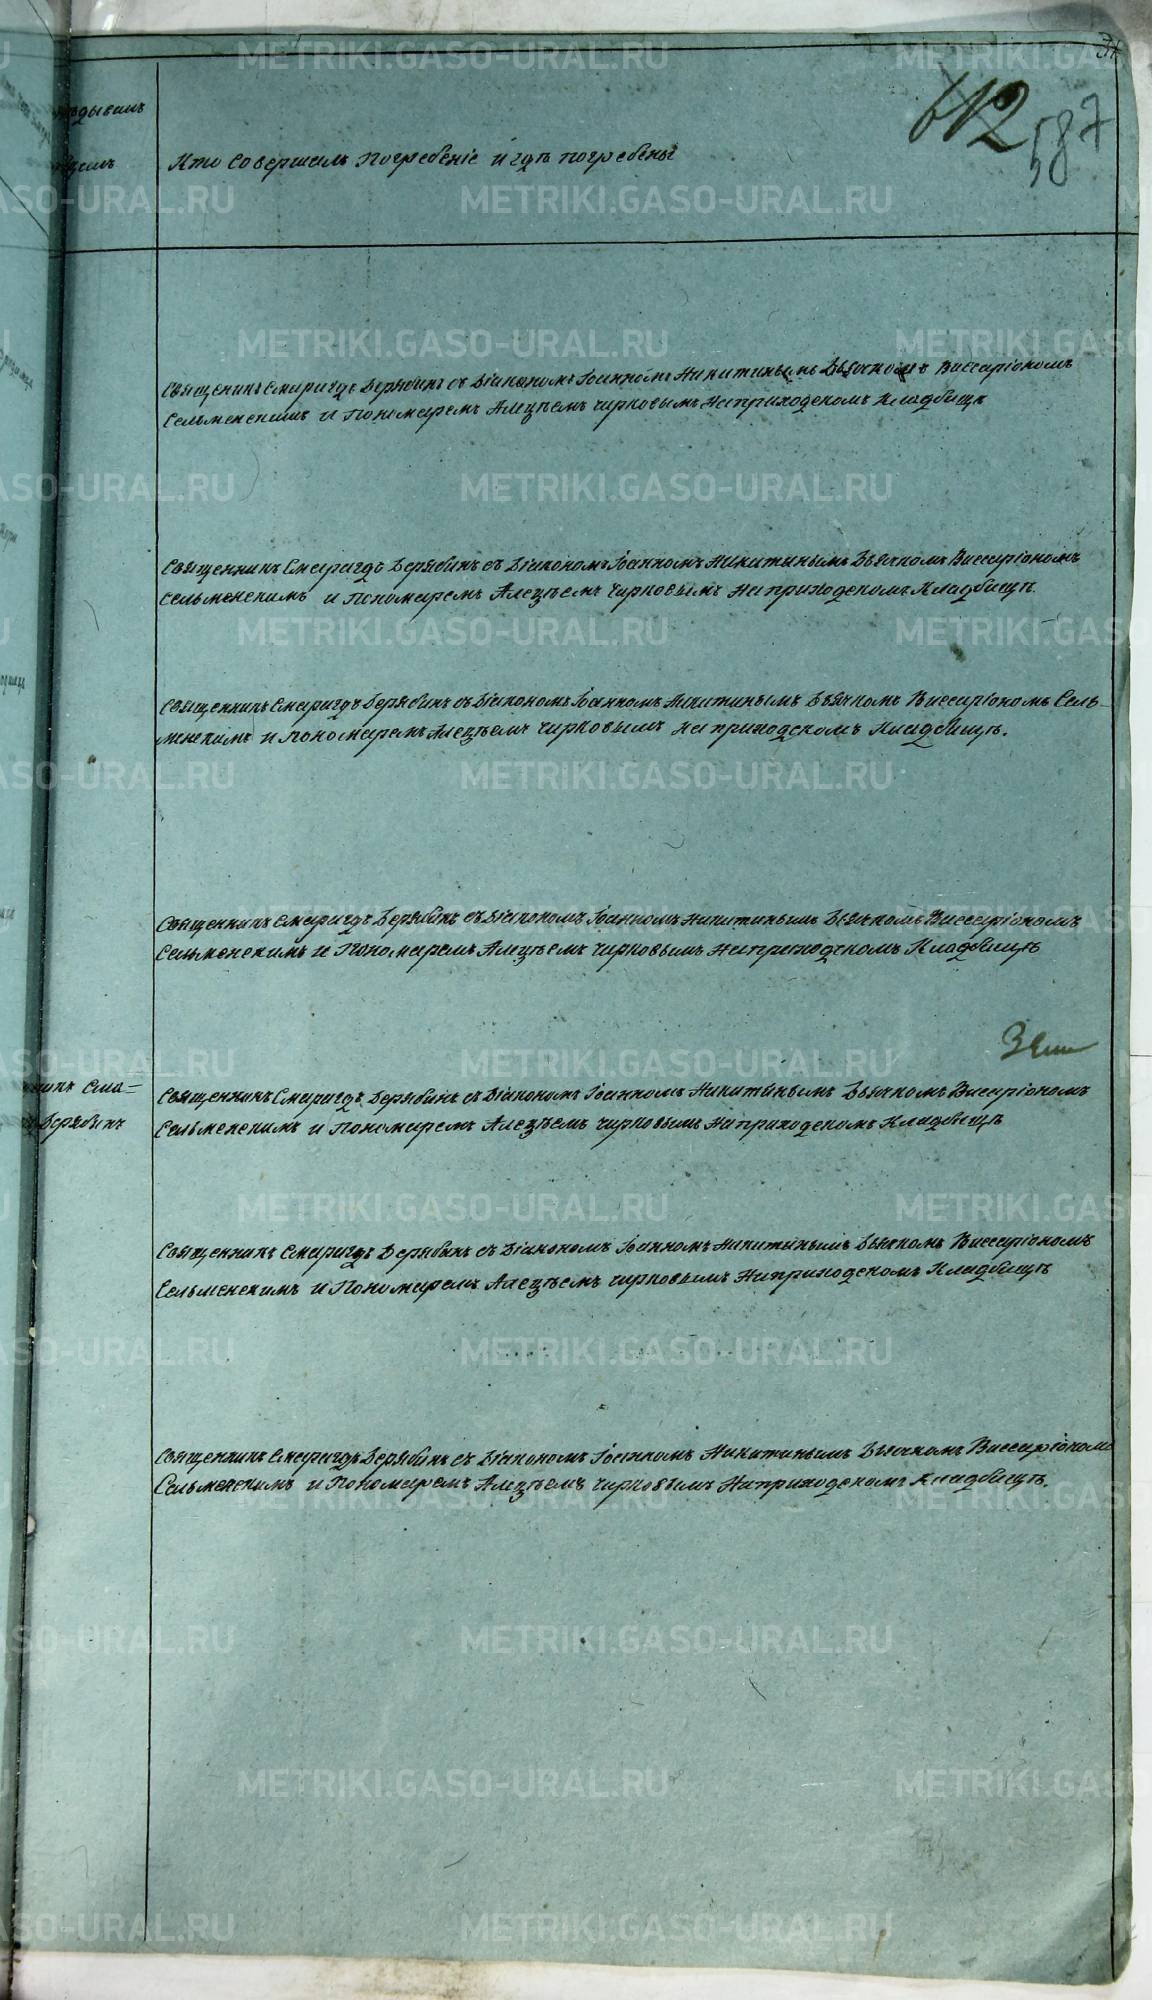 612
587
Кто совершалъ погребеніе и гдѣ погребены
Священникъ Смарагдъ Дерябинъ съ Діакономъ Іоанномъ Никитинымъ Дьячкомъ Виссаріономъ
Сельменскимъ и Пономаремъ Алеѯѣемъ Чирковымъ на приходскомъ Кладбищѣ
Священникъ Смарагдъ Дерябинъ съ Діакономъ Іоанномъ Никитинымъ Дьячкомъ Виссаріономъ
Сельменскимъ и Пономаремъ Алеѯѣемъ Чирковымъ на приходскомъ Кладбищѣ.
Священникъ Смарагдъ Дерябинъ съ Діакономъ Іоанномъ Никитинымъ Дьячкомъ Виссаріономъ Сель-
менскимъ и Пономаремъ Алеѯѣемъ Чирковымъ на приходскомъ Кладбищѣ.
Священникъ Смарагдъ Дерябинъ съ Діакономъ Іоанномъ Никитинымъ Дьячкомъ Виссаріономъ
Сельменскимъ и Пономаремъ Алеѯѣемъ Чирковымъ на приходскомъ Кладбищѣ
никъ Сма-
Дерябинъ
Священникъ Смарагдъ Дерябинъ съ Діакономъ Іоанномъ Никитинымъ Дьячкомъ Виссаріономъ
Сельменскимъ и Пономаремъ Алеѯѣемъ Чирковымъ на приходскомъ Кладбищѣ
Священникъ Смарагдъ Дерябинъ съ Діакономъ Іоанномъ Никитинымъ Дьячкомъ Виссаріономъ
Сельменскимъ и Пономаремъ Алеѯѣемъ Чирковымъ на приходскомъ Кладбищѣ
Священникъ Смарагдъ Дерябинъ съ Діакономъ Іоанномъ Никитинымъ Дьячкомъ Виссаріономъ
Сельменскимъ и Пономаремъ Алеѯѣемъ Чирковымъ на приходскомъ Кладбищѣ.
METRIKI.GASO-URAL.RU